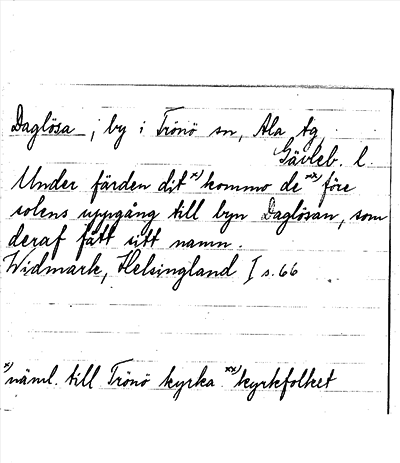 Daglösa, by i Trönö sn, Ala tg,
Gävleb. l.
Under färden dit x) kommo de xx) före
solens uppgång till byn Daglösan, som
deraf fått sitt namn.
Widmark, Helsingland I s. 66
x) näml. till Trönö kyrka. xx) kyrkfolket